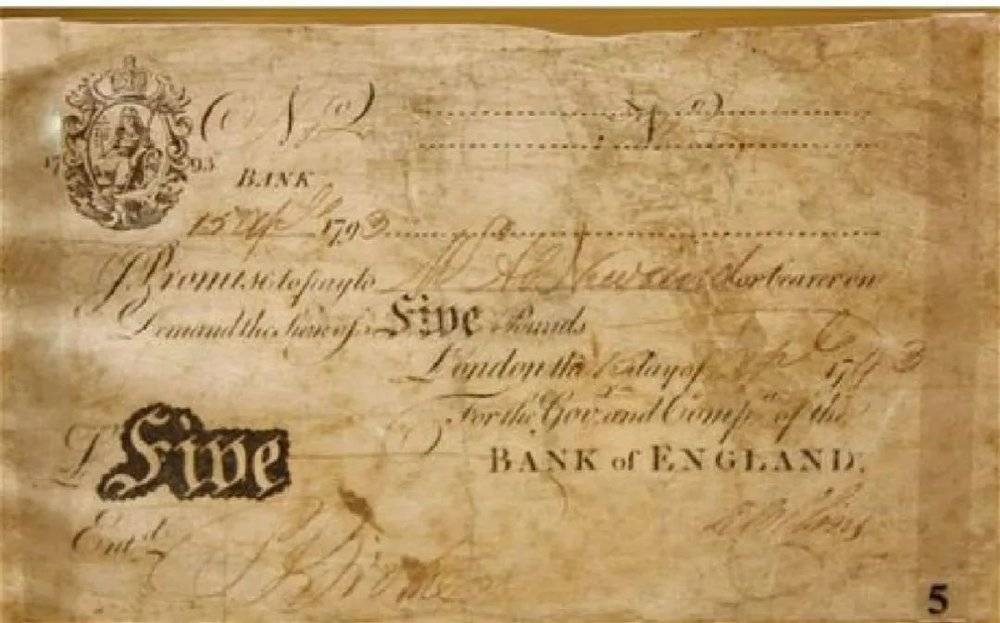 No No
1793
BANK
15 1793
I Promise to pay to Mr Ab. Newland or bearer on
Demand the Sume of Five Pounds
London the 15 day of 1793
For the Govr. and Compa. of the
BANK of ENGLAND.
£ Five
Entd.
5